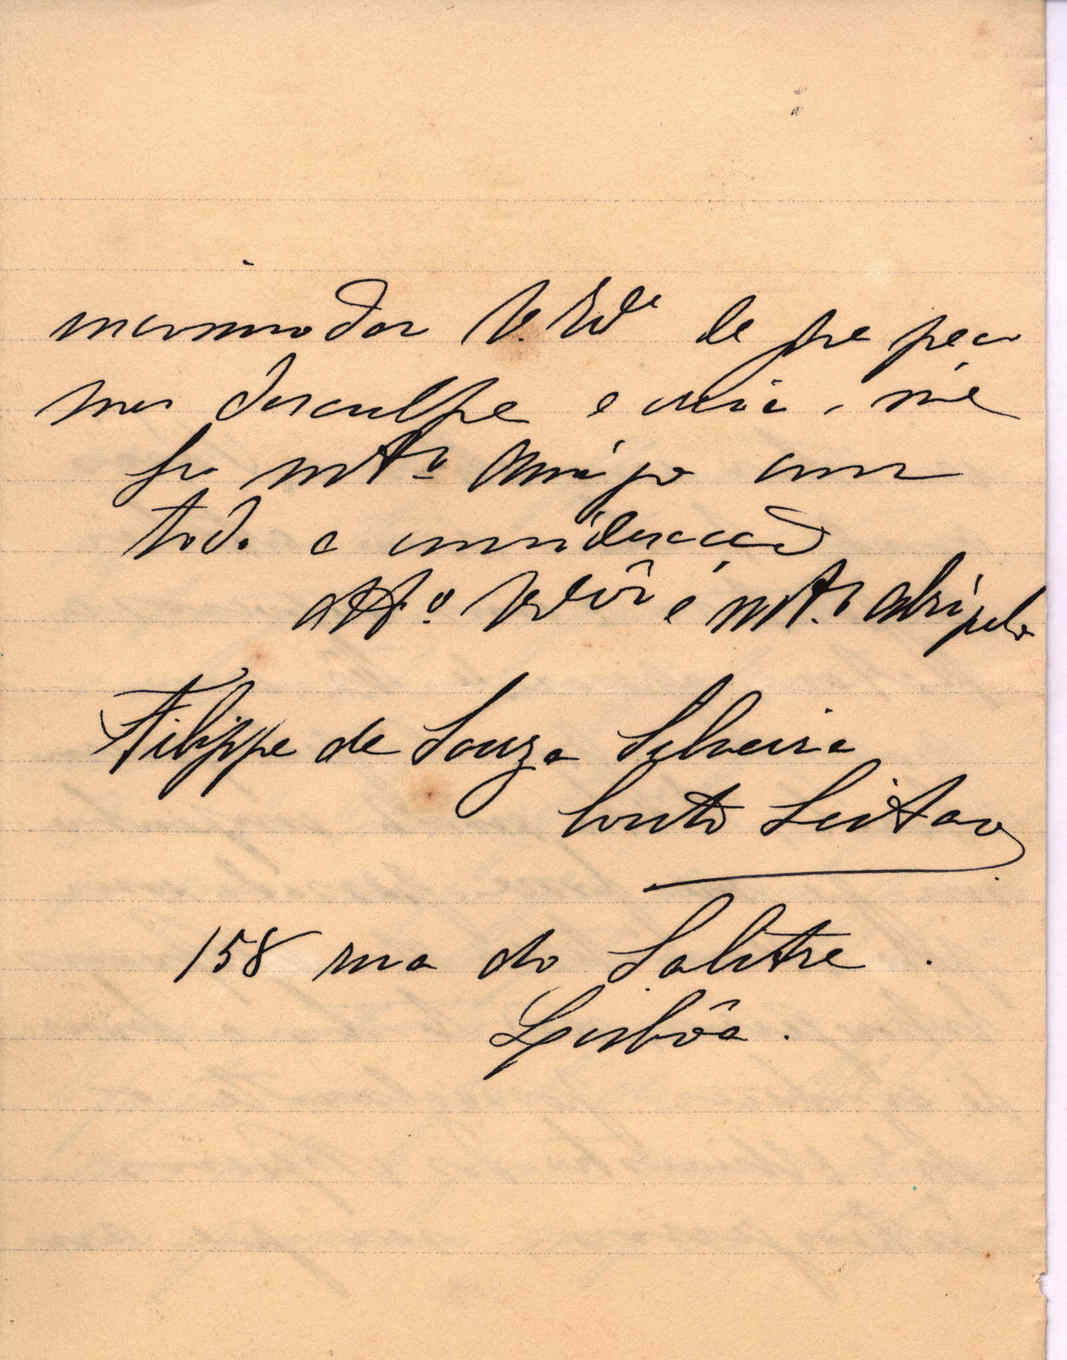 incommodar V. Ex.ª de que peço
me desculpe e creia-me
seu mt.º amigo com
toda a consideração
Att.º Ven.ôr e mt.º Obrigado
Filippe de Souza Silveira
Couto Leitao
158 rua do Salitre.
Lisbôa.